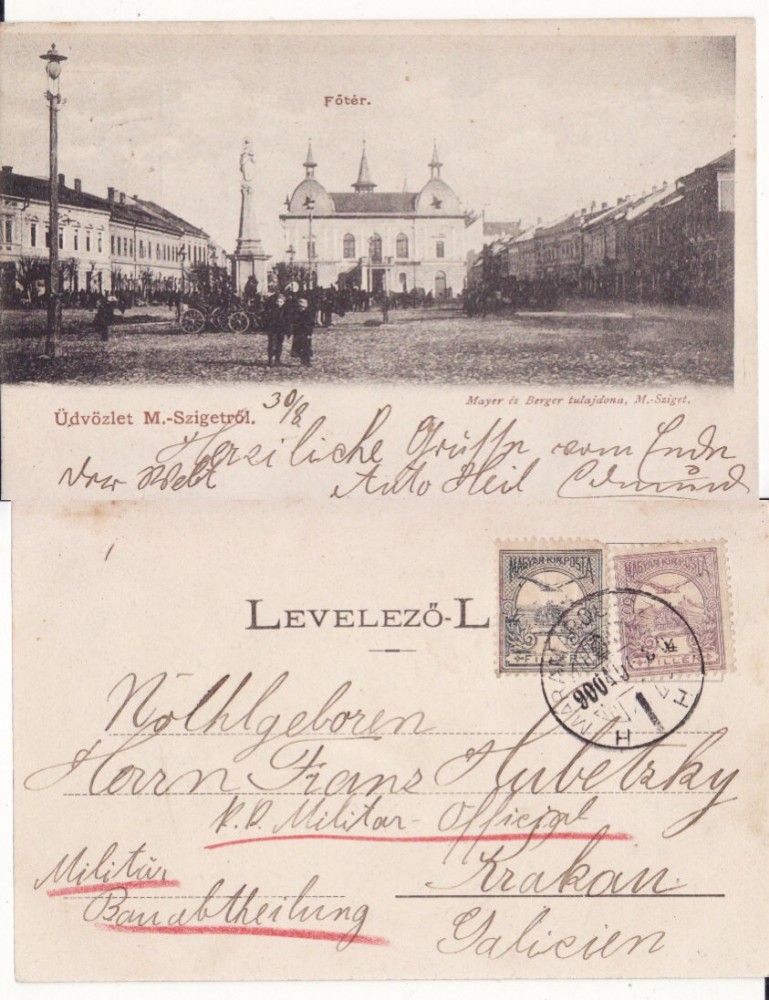 Főtér.
Mayer és Berger tulajdona, M.-Sziget.
Üdvözlet M.-Szigetről. 30/8
Herzliche Grüsse vom Ende
der Welt Auto Heil Edmund
MAGYAR KIR. POSTA MAGYAR KIR. POSTA
LEVELEZŐ-L
FILLÉR
900 AUG
H H
Wohlgeboren
Herrn Franz Hubetzky
k.k. Militär-Official
Militär Krakau
Bauabtheilung
Galicien